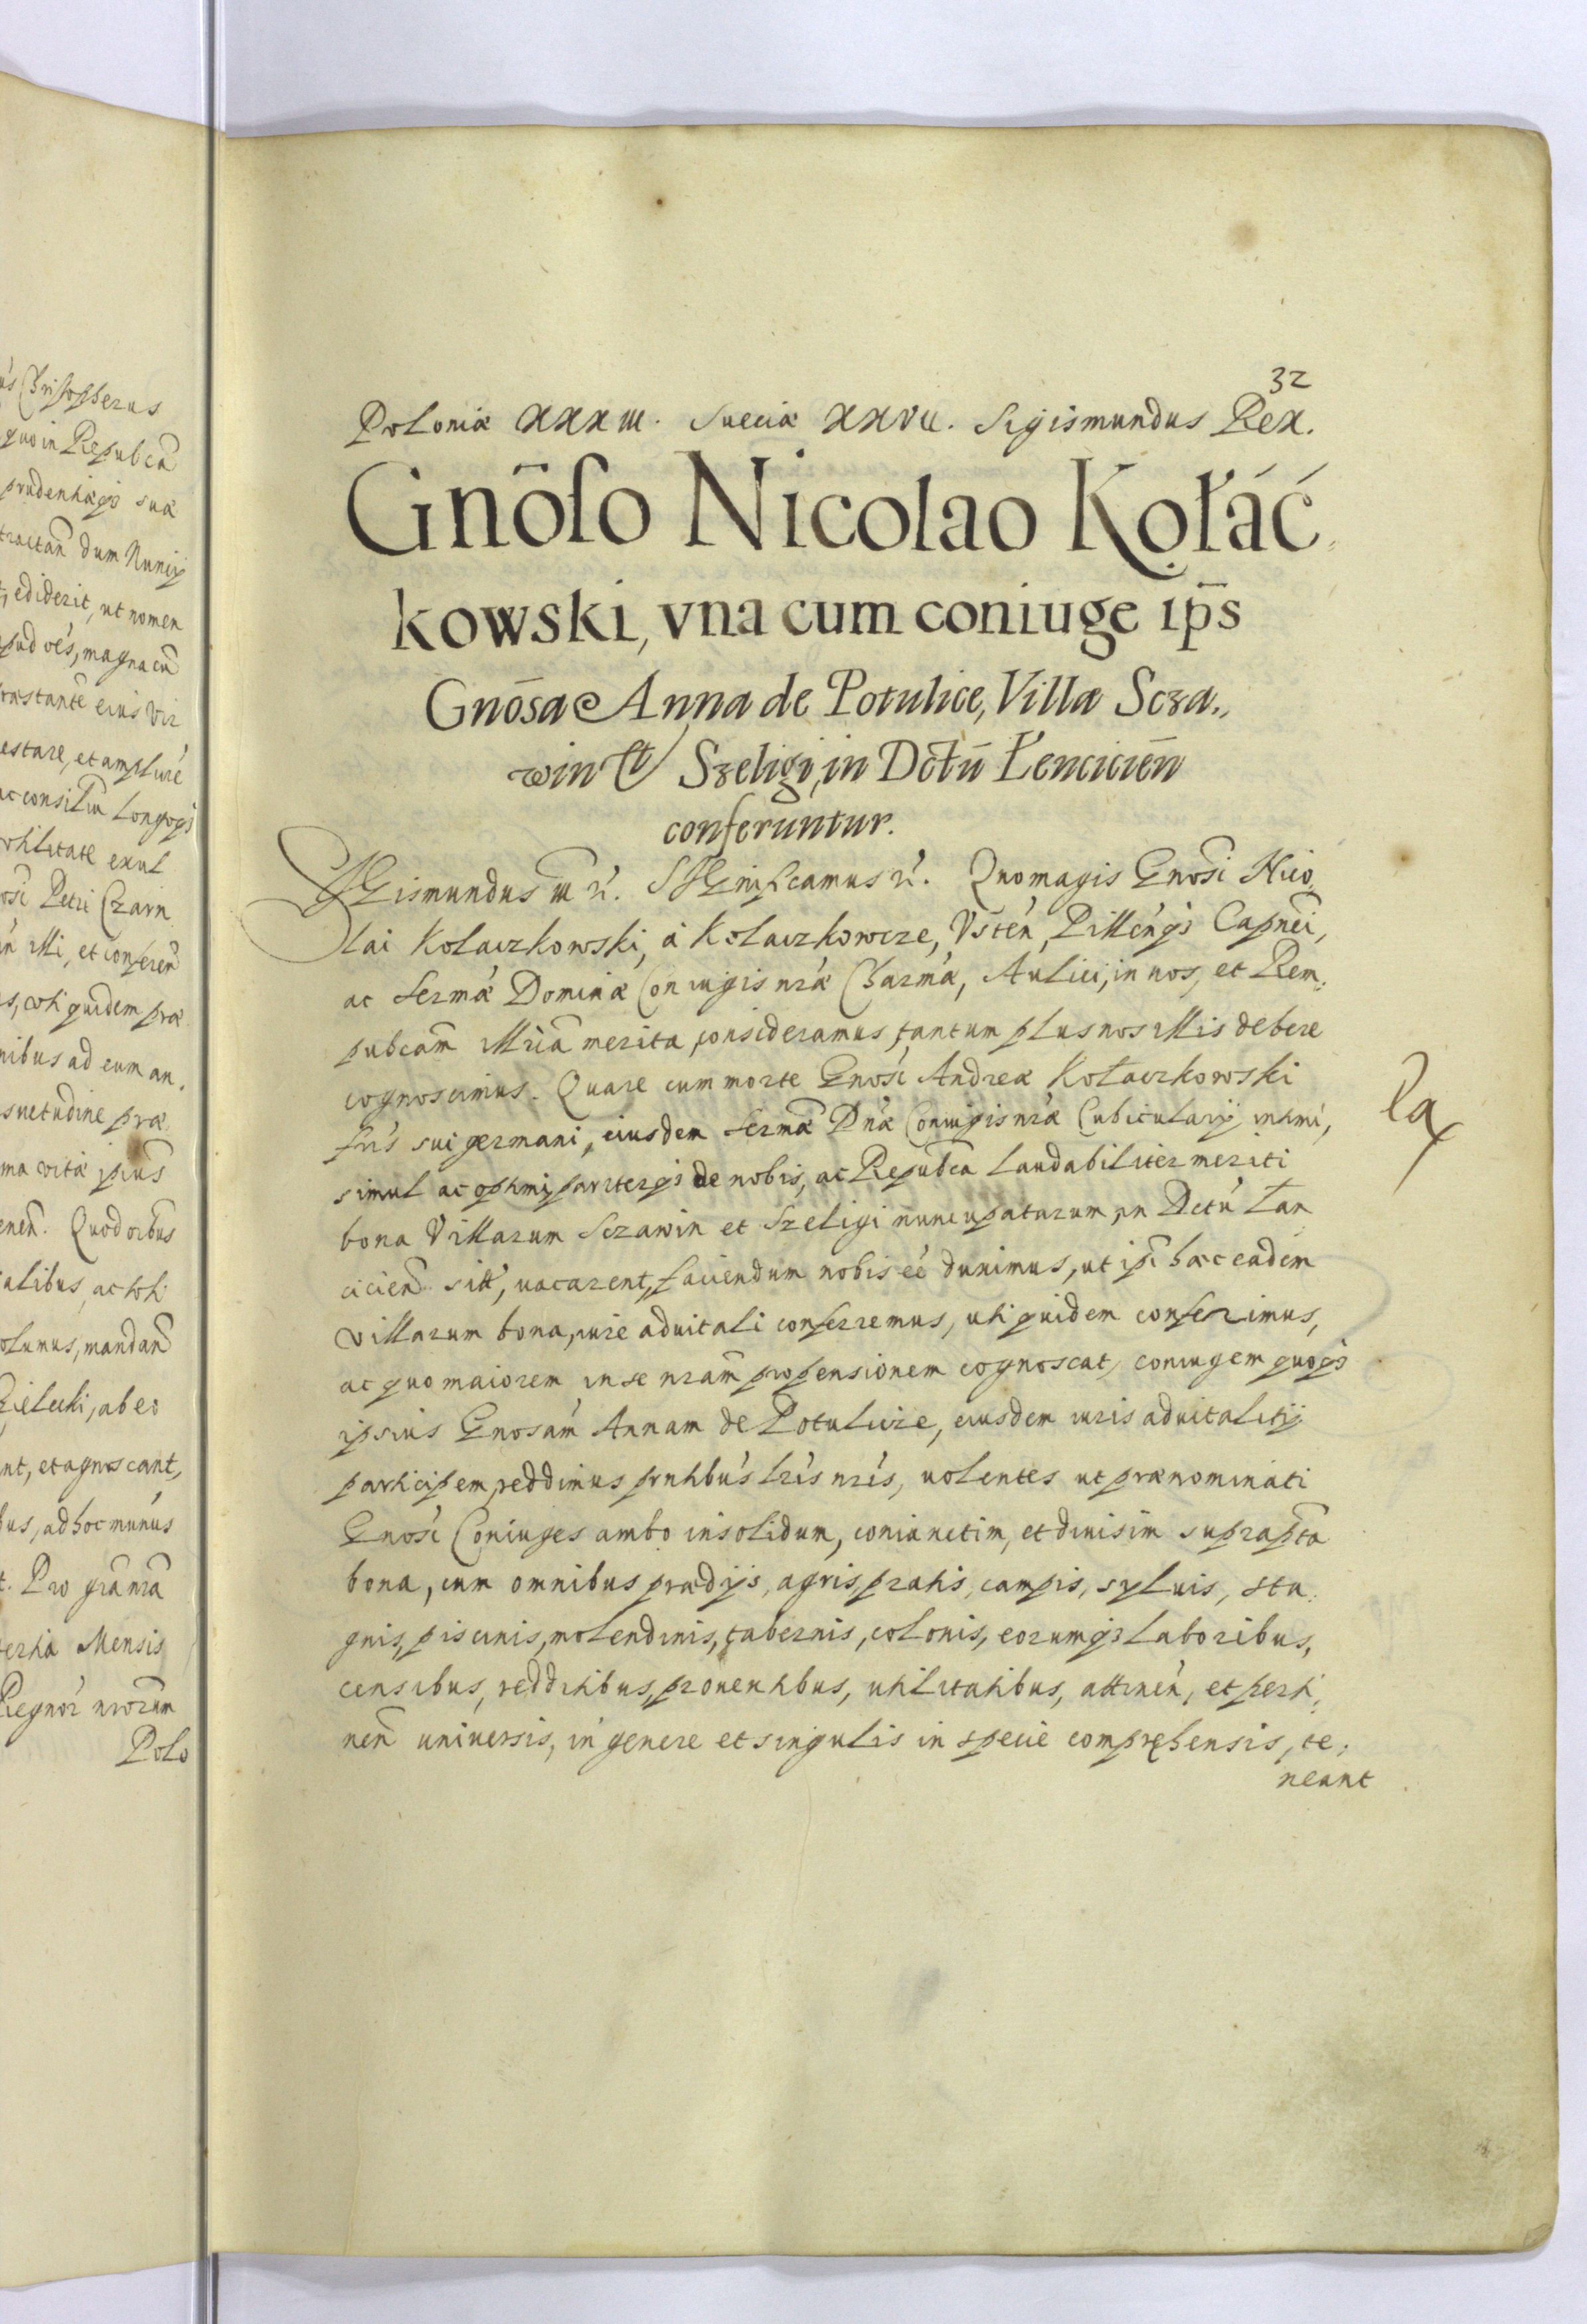 us Chrisopherus
quo in Repubcã
prudentiaeqȝ suae
tractañ dum Nuncij
ediderit, ut nomen
apud oẽs, magna cũ
praestantẽ eius vir
estare, et amplurẽ
ac consiliũ
utilitate exul
Petri Czarn
illi, et conferen̄
uti quidem prae
nibus ad eum an
suetudine prae
ma vitae ipius̃
enen̄. Quod oibus
alibus, ac
olumus, mandan̄
Zielecki, ab eo
nt, et agnoscant,
bus, ad hoc munus
t. Pro
ertia Mensis
Regnor̃ nrorum
Polo
32
Poloniae XXXIII. Sueciae XXVII. Sigismundus Rex.
Gnõso Nicolao Kołáć„
kowski, vna cum coniuge ip̄s
Gnōsae Anna de Potulice, Villae Scza„
win et Szeligi, in Dctũ Łencicien̄
conferuntur.
SIGismundus III r̃. SIGnificamus r̃. Quo magis Gnosi Nico„
lai Kolaczkowski, à Kolaczkowcze, Vsten̄, Pillen̄qȝ Capnei,
ac sermae Dominae Coniugis nrae Charmae, Aulici, in nos, et Rem„
pubcam illius merita consideramus, tantum plus nos illis debere
cognoscimus. Quare cum morte Gnosi Andreae Kołaczkowski
fris sui germani, eiusdem sermae Dnae Coniugis nrae Cubicularij intimi,
simul ac optimi pariterqȝ de nobis, ac Repubca laudabiliter meriti
bona Villarum Sczawin et Szeligi nuncupatarum, in Dctũ Lan
cicien̄ sitt̃, uacarent, faciendum nobis ẽẽ duximus, ut ipi haec eadem
villarum bona, iure aduitali conferremus, uti quidem conferimus,
ac quo maiorem in se nram propensionem cognoscat, coniugem quoqȝ
ipsius Gnosam Annam de Potulicze, eiusdem iuris aduitalitij
participem reddimus pntibus lris nris, uolentes ut praenominati
Gnosi Coniuges ambo insolidum, coniunctim, et diuisim suprapta
bona, cum omnibus praedijs, agris, pratis, campis, syluis, sta„
gnis, piscinis, molendinis, tabernis, colonis, eorumqȝ laboribus,
censibus, redditibus, prouentibus, utilitatibus, attinen̄, et perti„
nen̄ uniuersis, in genere et singulis in specie comprehensis, te„
neant